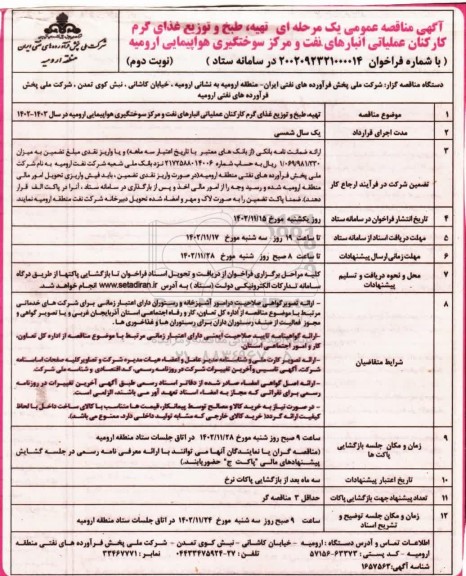 آگهی مناقصه عمومی یک مرحله ای تهیه، طبخ و توزیع غذای گرم
کارکنان عملیاتی انبارهای نفت و مرکز سوختگیری هواپیمایی ارومیه
( با شماره فراخوان ۲۰۰۲۰۹۲۳۲۱۰۰۰۰۱۴ در سامانه ستاد ) (نوبت دوم)
منطقه ارومیه
دستگاه مناقصه گزار: شرکت ملی پخش فرآورده های نفتی ایران- منطقه ارومیه به نشانی ارومیه ، خیابان کاشانی ، نبش کوی تمدن ، شرکت ملی پخش
فرآورده های نفتی ارومیه
۱ موضوع مناقصه تهیه، طبخ و توزیع غذای گرم کارکنان عملیاتی انبارهای نفت و مرکز سوختگیری هواپیمایی ارومیه در سال ۱۴۰۳-۱۴۰۲
۲ مدت اجرای قرارداد یک سال شمسی
۳ تضمین شرکت در فرآیند ارجاع کار
ارائه ضمانت نامه بانکی (از بانک های معتبر با تاریخ اعتبار سه ماهه) و یا واریز نقدی مبلغ تضمین به میزان
۱/۰۶۹/۹۸۱/۳۳۰ ریال به حساب شماره ۲۱۷۲۵۸۸۰۱۴۰۰۶ نزد بانک ملی شعبه شرکت نفت ارومیه به نام شرکت
ملی پخش فرآورده های نفتی منطقه ارومیه(در صورت واریز نقدی تضمین، باید فیش واریزی تحویل امور مالی
منطقه ارومیه شده و رسید وجه را از امور مالی اخذ و پس از بارگذاری در سامانه ستاد ، آنرا در پاکت الف قرار
دهند). ضمنا پاکت تضمین را به صورت لاک و مهر و امضاء شده تحویل دبیرخانه شرکت نفت منطقه ارومیه نمایند.
۴ تاریخ انتشار فراخوان در سامانه ستاد روز یکشنبه مورخ ۱۴۰۲/۱۱/۱۵
۵ مهلت دریافت اسناد از سامانه ستاد تا ساعت ۱۹ روز سه شنبه مورخ ۱۴۰۲/۱۱/۱۷
۶ مهلت زمانی ارسال پیشنهادات تا ساعت ۸ صبح روز شنبه مورخ ۱۴۰۲/۱۱/۲۸
۷ محل و نحوه دریافت و تسلیم پیشنهادات
کلیه مراحل برگزاری فراخوان از دریافت و تحویل اسناد فراخوان تا بازگشایی پاکتها از طریق درگاه
سامانه تدارکات الکترونیکی دولت (ستاد) به آدرس www.setadiran.ir انجام خواهد شد.
۸ شرایط متقاضیان
- ارائه تصویر گواهی صلاحیت در امور آشپزخانه و رستوران دارای اعتبار زمانی برای شرکت های خدماتی
مرتبط با موضوع مناقصه از اداره کل تعاون، کار و رفاه اجتماعی استان آذربایجان غربی و یا تصویر گواهی و
مجوز فعالیت از صنف رستوران داران برای رستوران ها و غذاخوری ها.
- ارائه گواهینامه تایید صلاحیت ایمنی دارای اعتبار زمانی مرتبط با موضوع مناقصه از اداره کل تعاون،
کار و امور اجتماعی استان
- ارائه تصویر کارت ملی و شناسنامه مدیر عامل و اعضاء هیات مدیره شرکت و تصاویر کلیه صفحات اساسنامه
شرکت، آگهی تاسیس و آخرین تغییرات شرکت در روزنامه رسمی، کد اقتصادی و شناسه ملی شرکت
- ارائه اصل گواهی امضاء صادر شده از دفاتر اسناد رسمی طبق آگهی آخرین تغییرات در روزنامه
رسمی برای نفراتی که مجاز به امضاء اسناد تعهد آور می باشند، الزامی است.
- در صورت نیاز به خرید کالا و مصالح توسط پیمانکار، قیمت ها متناسب با کالای ساخت داخل با لحاظ
کیفیت ارائه گردد( خرید کالای خارجی که مشابه تولید داخلی دارد، ممنوع می باشد).
۹ زمان و مکان جلسه بازگشایی پاکت ها
ساعت ۹ صبح روز شنبه مورخ ۱۴۰۲/۱۱/۲۸ در اتاق جلسات ستاد منطقه ارومیه
(مناقصه گران یا نمایندگان آنها می توانند با ارائه معرفی نامه رسمی در جلسه گشایش
پیشنهادهای مالی "پاکت ج" حضور یابند.)
۱۰ تاریخ اعتبار پیشنهادات سه ماه بعد از بازگشایی پاکات نرخ
۱۱ تعداد پیشنهاد جهت بازگشایی پاکات حداقل ۳ مناقصه گر
۱۲ زمان و مکان جلسه توضیح و تشریح اسناد ساعت ۹ صبح روز سه شنبه مورخ ۱۴۰۲/۱۱/۲۴ در اتاق جلسات ستاد منطقه ارومیه
اطلاعات تماس و آدرس دستگاه : ارومیه - خیابان کاشانی - نبش کوی تمدن - شرکت ملی پخش فرآورده های نفتی منطقه
ارومیه - کد پستی : ۶۳۳۷۳-۵۷۱۵۶ تلفن : ۳۷-۰۴۴۳۳۴۷۵۹۲۴ نمابر : ۳۳۴۶۷۷۷۱
شناسه آگهی: ۱۶۵۷۵۶۳